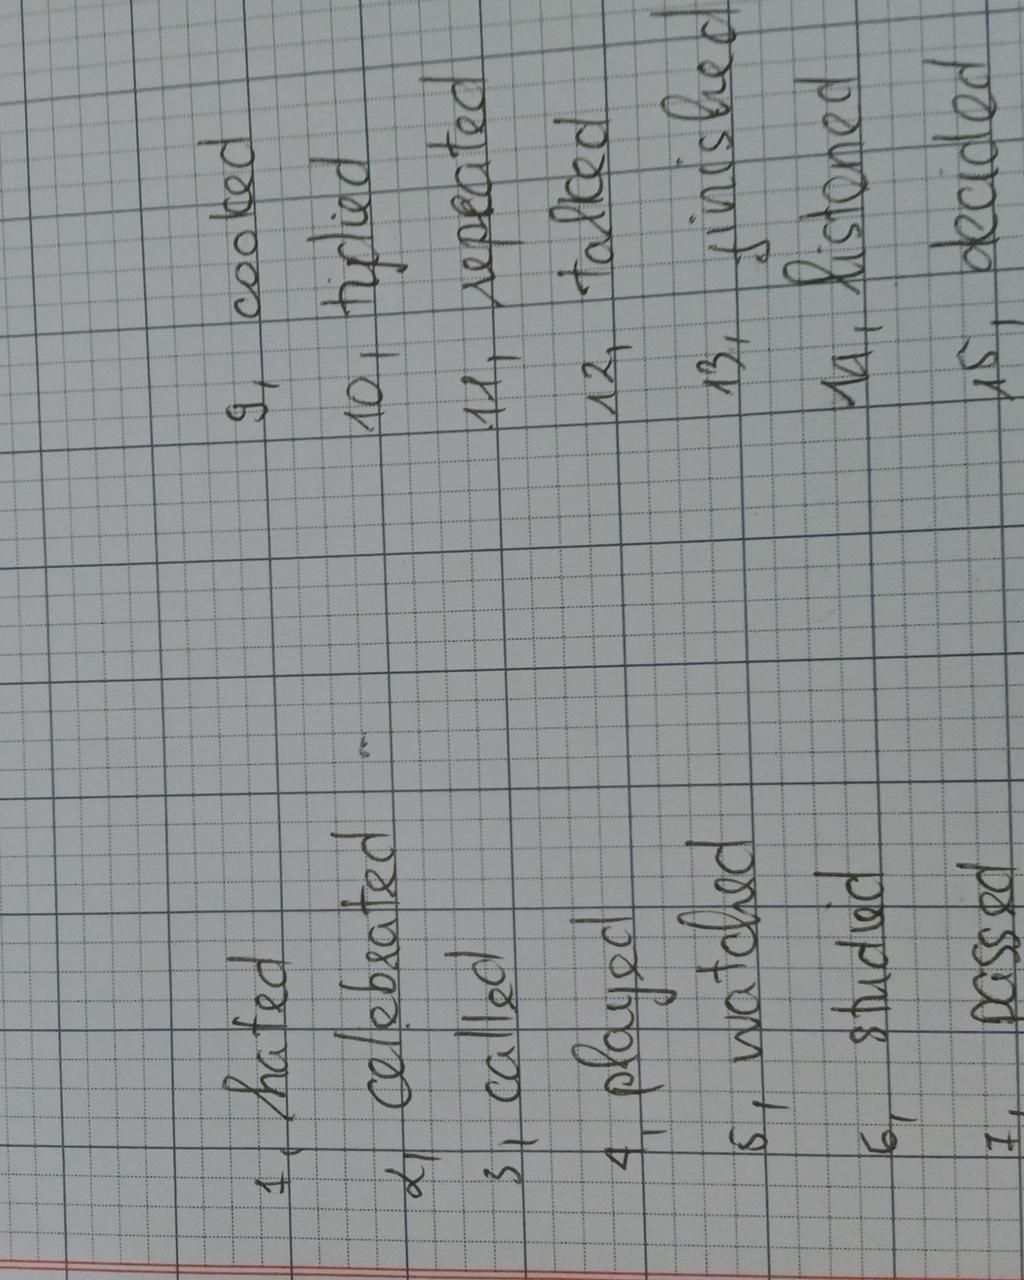 1, hated
2, celebrated
3, called
4, played
5, watched
6, studied
7, passed
9, cooked
10, tiplied
11, repeated
12, talked
13, finished
14, listoned
15, decided